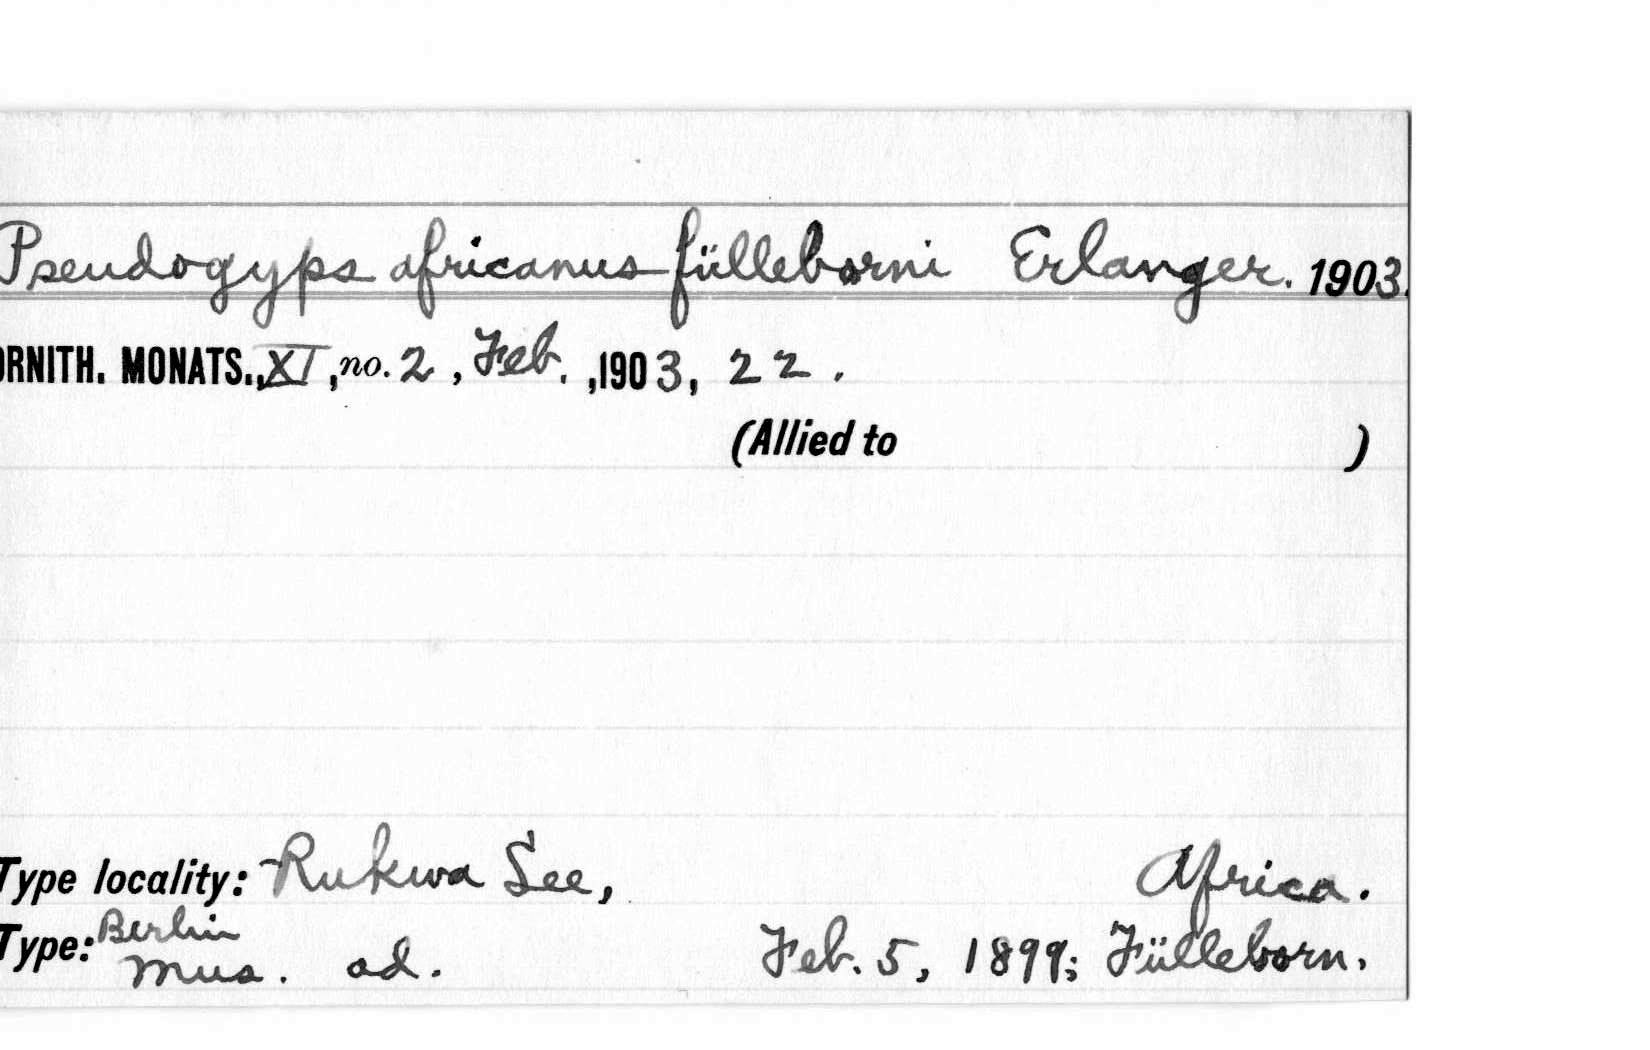 Pseudogyps africanus fülleborni Erlanger. 1903.
ORNITH. MONATS., XI, no. 2, Feb., 1903, 22.
(Allied to )
Type locality: Rukwa See, Africa.
Type: Berlin
Mus. ad. Feb. 5, 1899; Fülleborn.